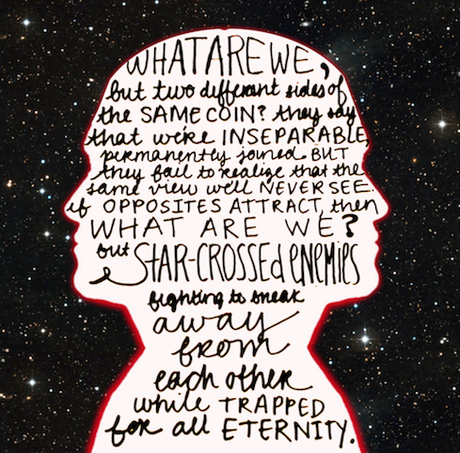 WHAT ARE WE,
but two different sides of
the SAME COIN? they say
that we're INSEPARABLE,
permanently joined. BUT
they fail to realize that the
same view we'll NEVER SEE.
if OPPOSITES ATTRACT, then
WHAT ARE WE?
but STAR-CROSSED enemies
fighting to sneak
away
from
each other
while TRAPPED
for all ETERNITY.